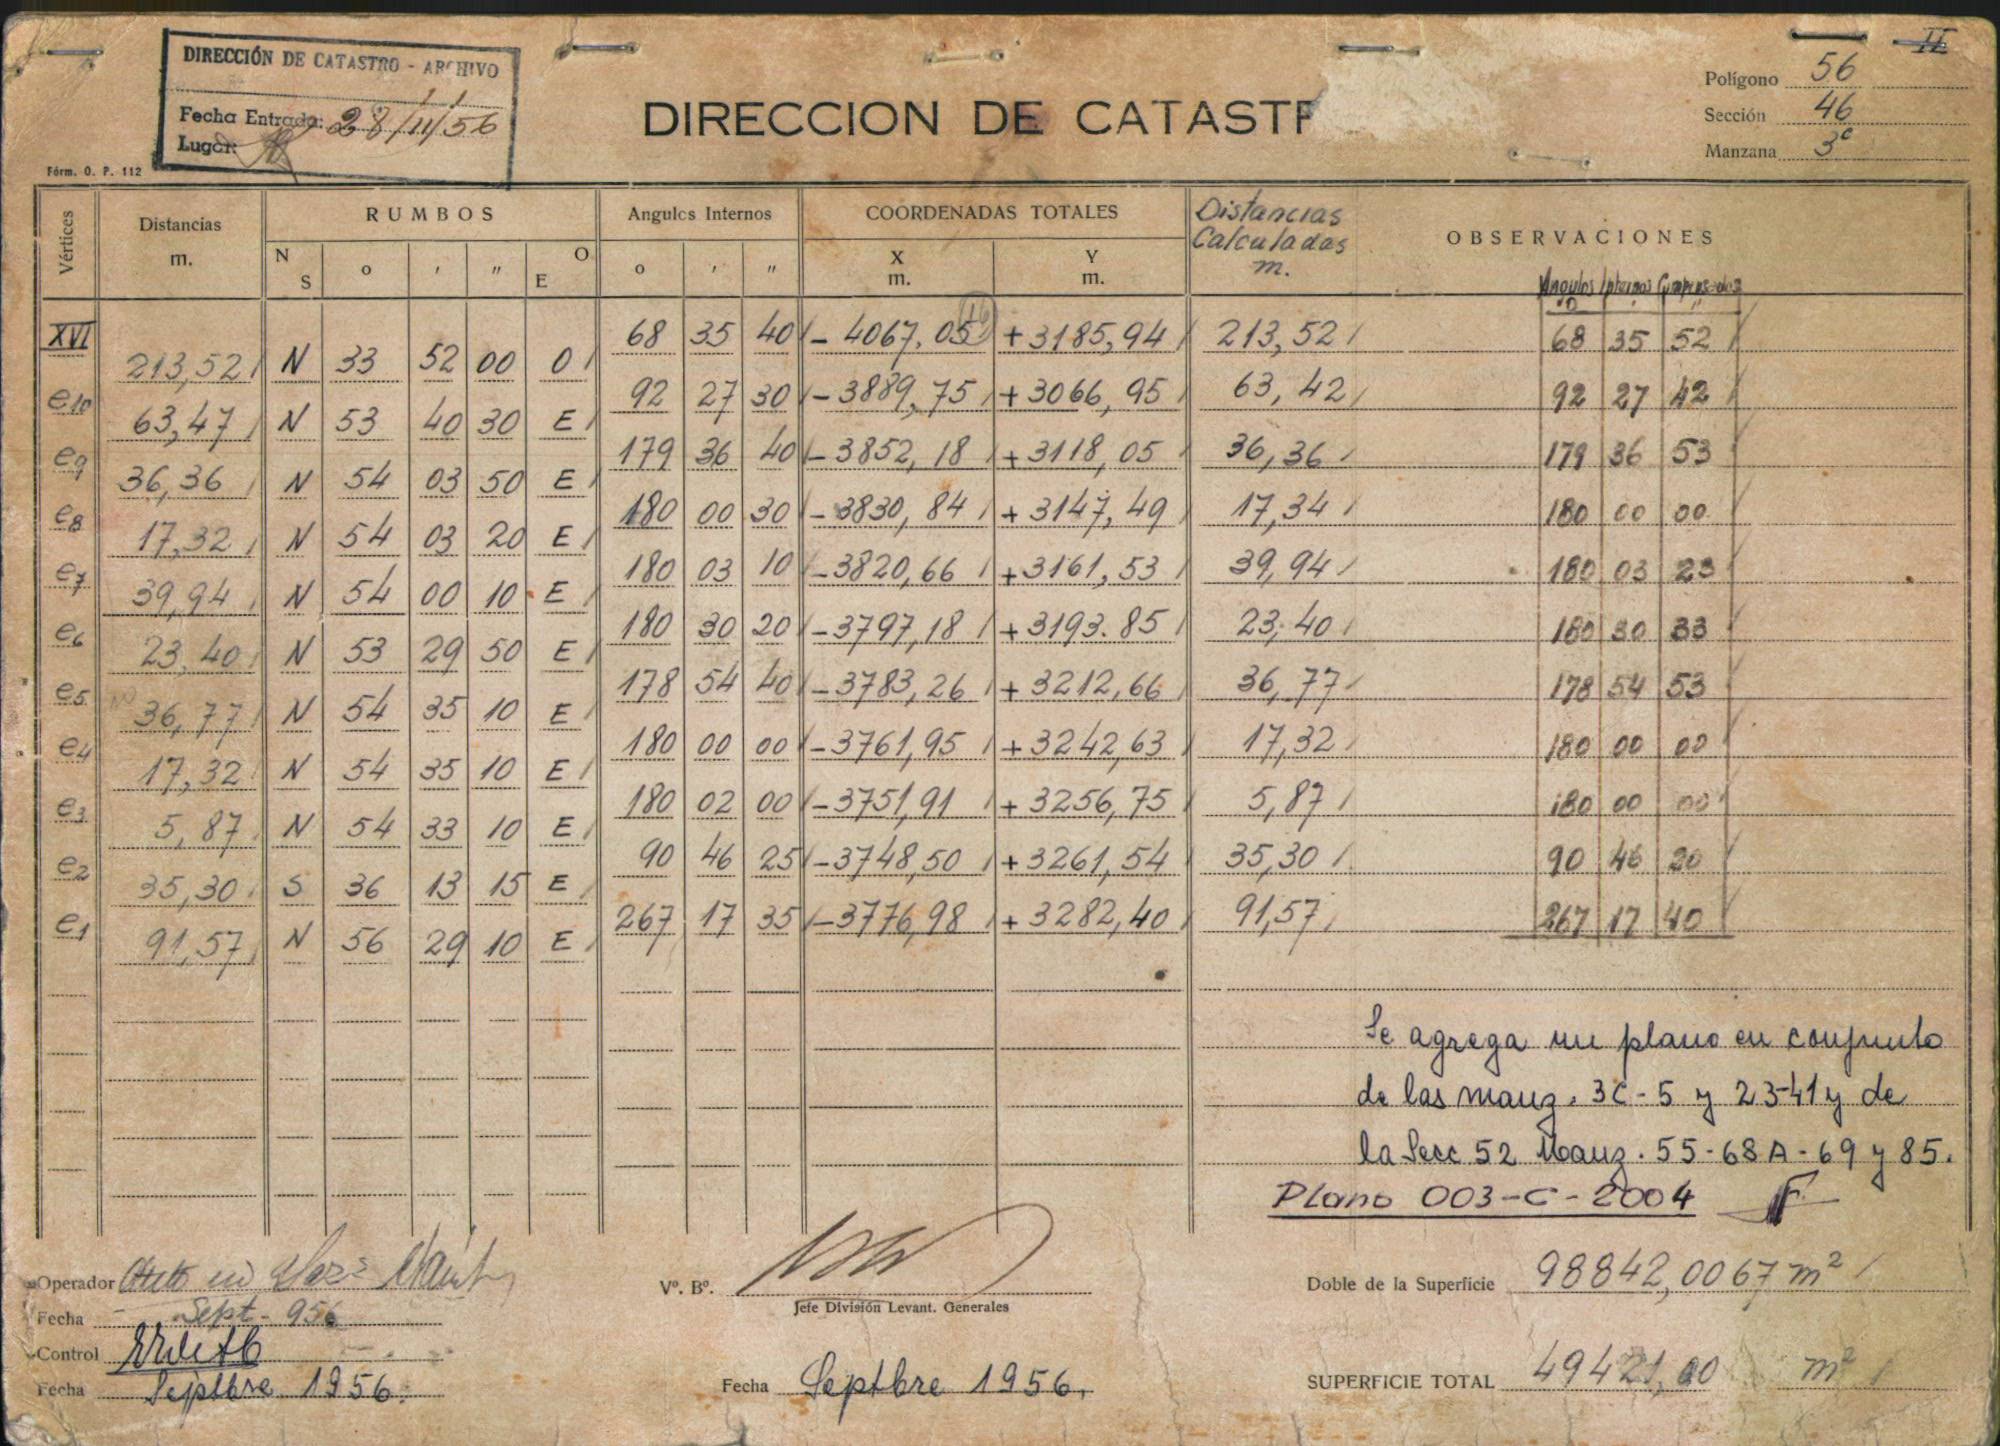 II
DIRECCIÓN DE CATASTRO - ARCHIVO
Fecha Entrada: 28/11/56
Lugar:
DIRECCION DE CATASTR
Polígono 56
Sección 46
Manzana 3c
Fórm. O. P. 112
Vértices Distancias m. RUMBOS Angulos Internos COORDENADAS TOTALES Distancias Calculadas m. OBSERVACIONES
N S o ' " O E o ' " X m. Y m. Angulos Internos Compensados
XVI 68 35 40 - 4067,05 + 3185,94 213,52 68 35 52
213,52 N 33 52 00 O
e10 92 27 30 - 3889,75 + 3066,95 63,42 92 27 42
63,47 N 53 40 30 E
e9 179 36 40 - 3852,18 + 3118,05 36,36 179 36 53
36,36 N 54 03 50 E
e8 180 00 30 - 3830,84 + 3147,49 17,34 180 00 00
17,32 N 54 03 20 E
e7 180 03 10 - 3820,66 + 3161,53 39,94 180 03 23
39,94 N 54 00 10 E
e6 180 30 20 - 3797,18 + 3193.85 23,40 180 30 33
23,40 N 53 29 50 E
e5 178 54 40 - 3783,26 + 3212,66 36,77 178 54 53
36,77 N 54 35 10 E
e4 180 00 00 - 3761,95 + 3242,63 17,32 180 00 00
17,32 N 54 35 10 E
e3 180 02 00 - 3751,91 + 3256,75 5,87 180 00 00
5,87 N 54 33 10 E
e2 90 46 25 - 3748,50 + 3261,54 35,30 90 46 20
35,30 S 36 13 15 E
e1 267 17 35 - 3776,98 + 3282,40 91,57 267 17 40
91,57 N 56 29 10 E
Se agrega un plano en conjunto
de las manz. 3C - 5 y 23-41 y de
la Secc 52 Manz. 55 - 68A - 69 y 85.
Plano 003-C-2004
Operador
Fecha Sept - 956
Control
Fecha Septbre 1956.
Vº. Bº.
Jefe División Levant. Generales
Fecha Septbre 1956.
Doble de la Superficie 98842,0067 m2
SUPERFICIE TOTAL 49421,00 m2